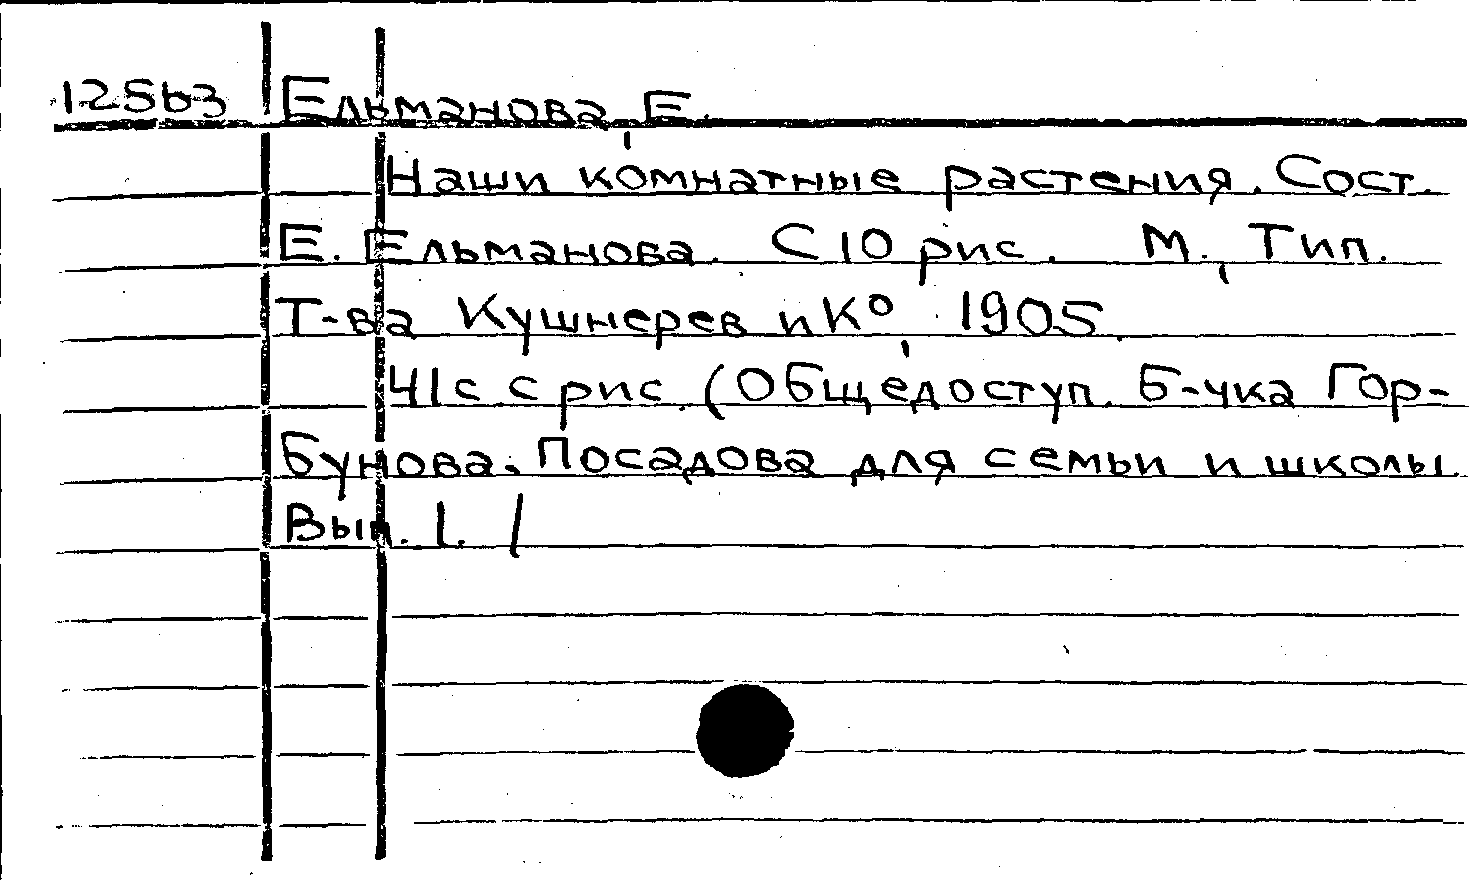 125б3 Ельманова, Е.
Наши комнатные растения. Сост.
Е. Ельманова. С 10 рис. М., Тип.
Т-ва Кушнерев и К°, 1905.
41с. с рис. (Общедоступ. Б-чка Гор-
бунова. Посадова для семьи и школы.
Вып. 1. /